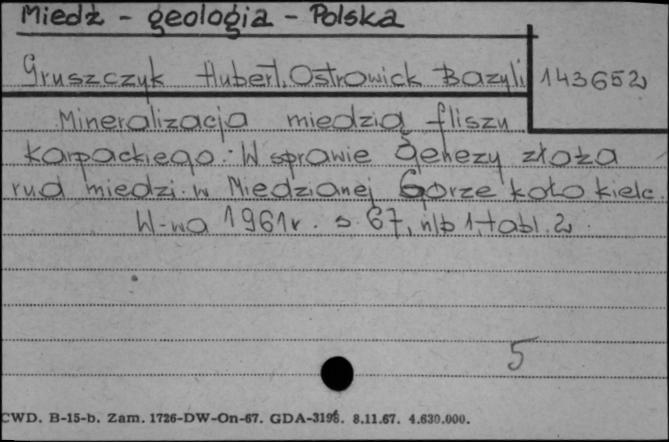 Miedź - geologia - Polska
Gruszczyk Hubert, Ostrowick Bazyli 143652
Mineralizacja miedzią fliszu
Karpackiego. W sprawie genezy złoża
rud miedzi w Miedzianej Górze koło Kielc.
W-wa 1961r. s. 67, nlb 1, tabl. 2.
5
CWD. B-15-b. Zam. 1726-DW-On-67. GDA-3198. 8.11.67. 4.630.000.